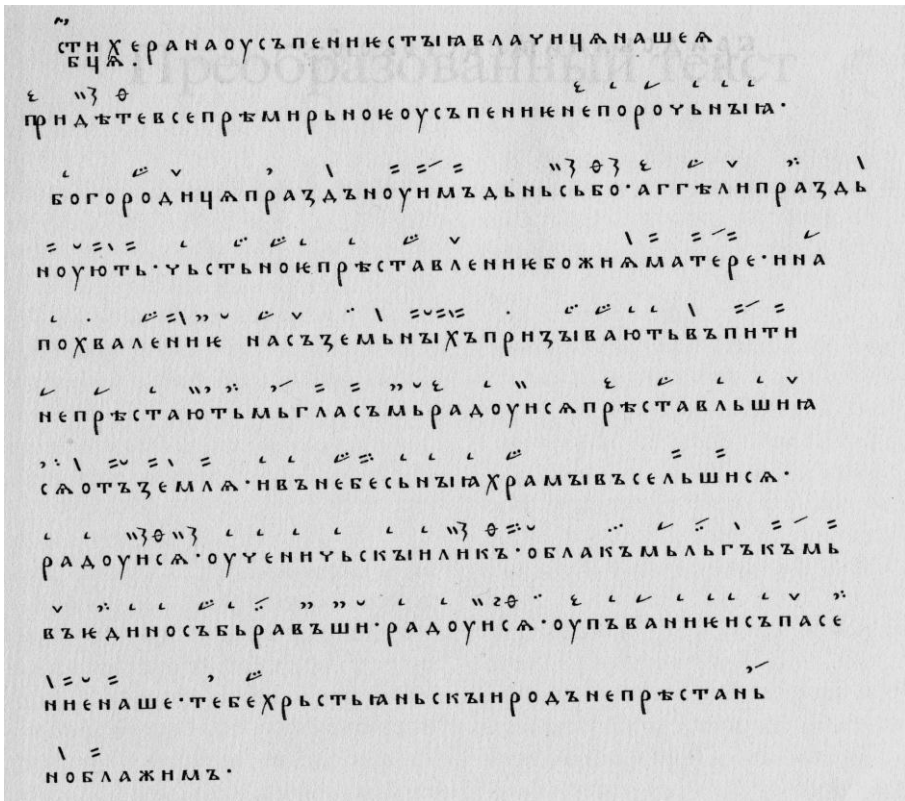 стихеранаоусъпениѥстыꙗвлачицѧнашеѧ
бцѧ.
Преобразованный текст
придѣтевсепрѣмирьноѥоусъпениѥнепорочьныꙗ·
богородицѧпраздъноуимъдьньсьбо·аггѣлипраздь
ноують·чьстьноѥпрѣставлениѥбожиѧматере·ина
похвалениѥ насъземьныхъпризываютьвъпити
непрѣстаютьмьгласъмьрадоуисѧпрѣставльшиꙗ
сѧотъземлѧ·ивънебесьныꙗхрамывъсельшисѧ·
радоуисѧ·оученичьскыиликъ·облакъмьльгъкъмь
въѥдиносъбьравъши·радоуисѧ·оупъваниѥисъпасе
ниенаше·тебехрьстьꙗньскыиродънепрѣстань
ноблажимъ·